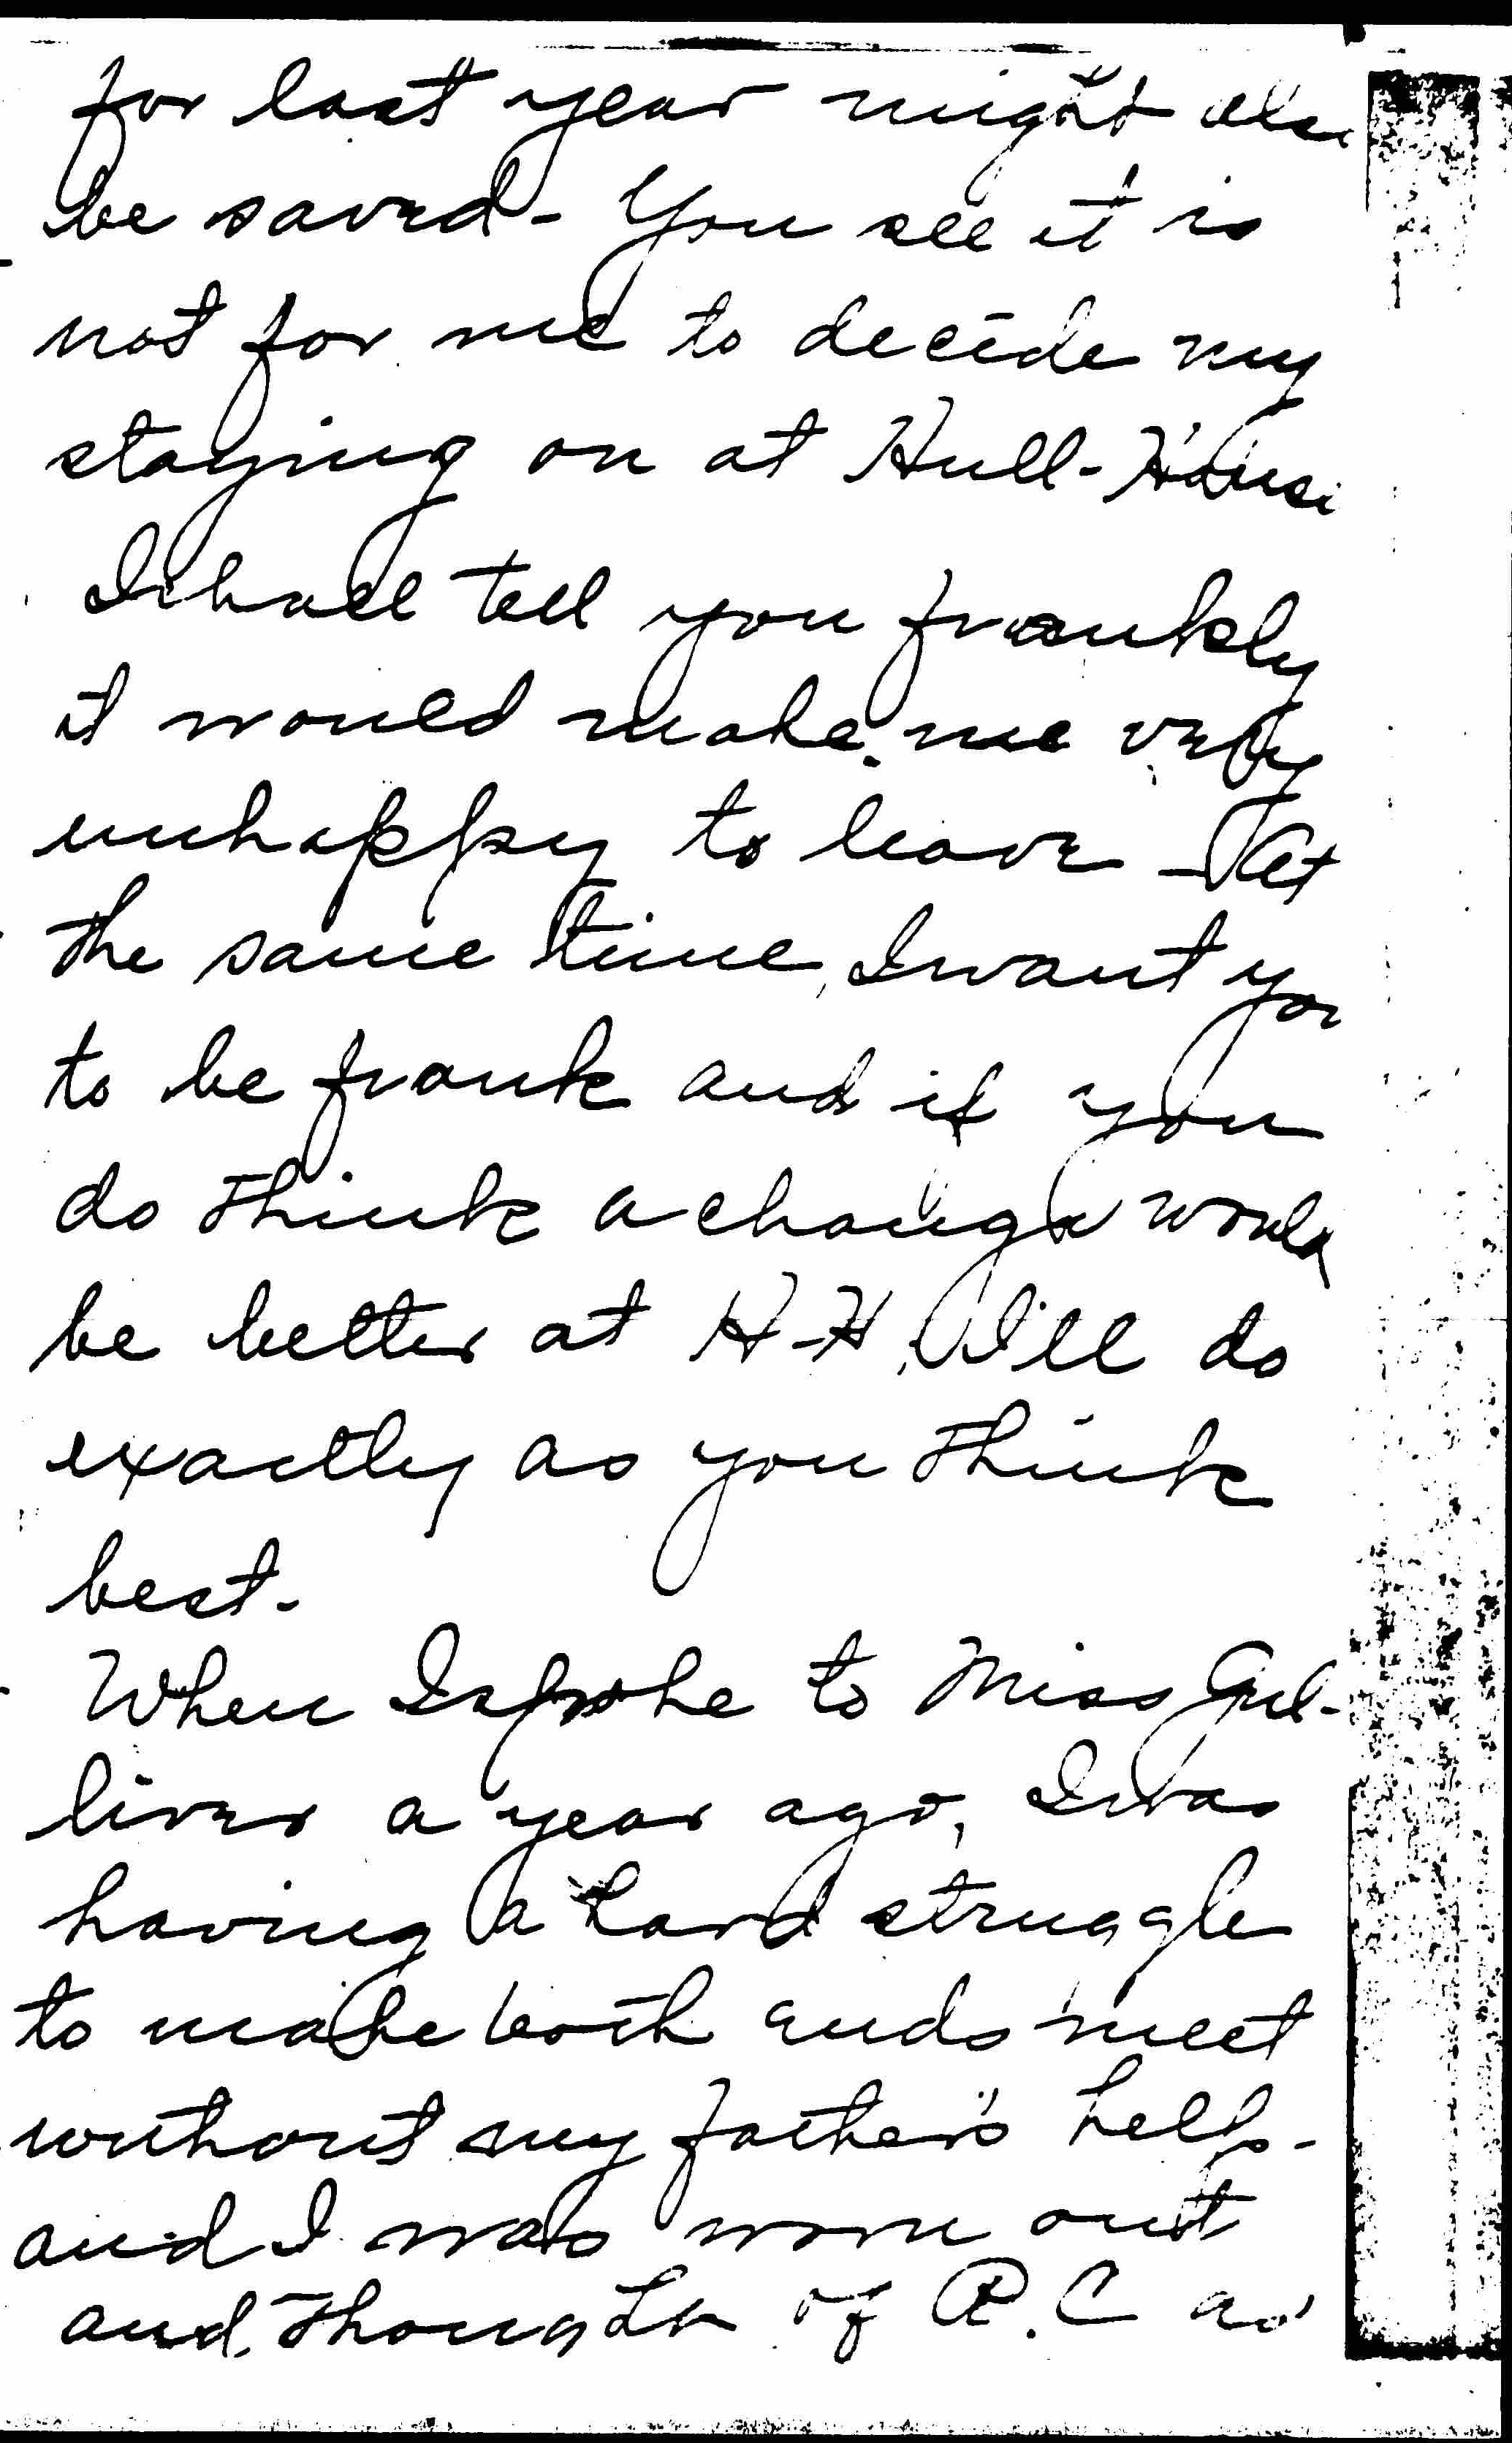 for last year might also
be saved - You see it is
not for me to decide my
staying on at Hull-House
I shall tell you frankly
it would make me very
unhappy to leave - At
the same time, I want you
to be frank and if you
do think a change would
be better at H-H, I'll do
exactly as you think
best.
When I spoke to Miss Gul-
liver a year ago, I was
having a hard struggle
to make both ends meet
without my father's help -
and I was worn out
and thought of R.C as